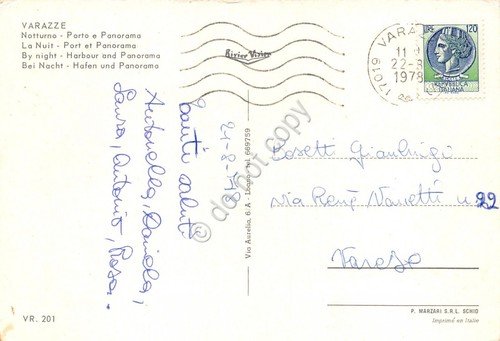 VARAZZE
Notturno - Porto e Panorama
La Nuit - Port et Panorama
By night - Harbour and Panorama
Bei Nacht - Hafen und Panorama
Rivier Vivier
17019 VARAZZE
22-8
1978
LIRE 120
REPUBBLICA
ITALIANA
21-8-78
Tanti saluti
Antonella, Daniela,
Laura, Antonio, Rosa.
Via Aurelia, 6 A
tel. 669759
Rosetti Gianluigi
via René Vanetti n 22
Varese
do not copy
VR. 201
P. MARZARI S.R.L. SCHIO
Imprimé en Italie